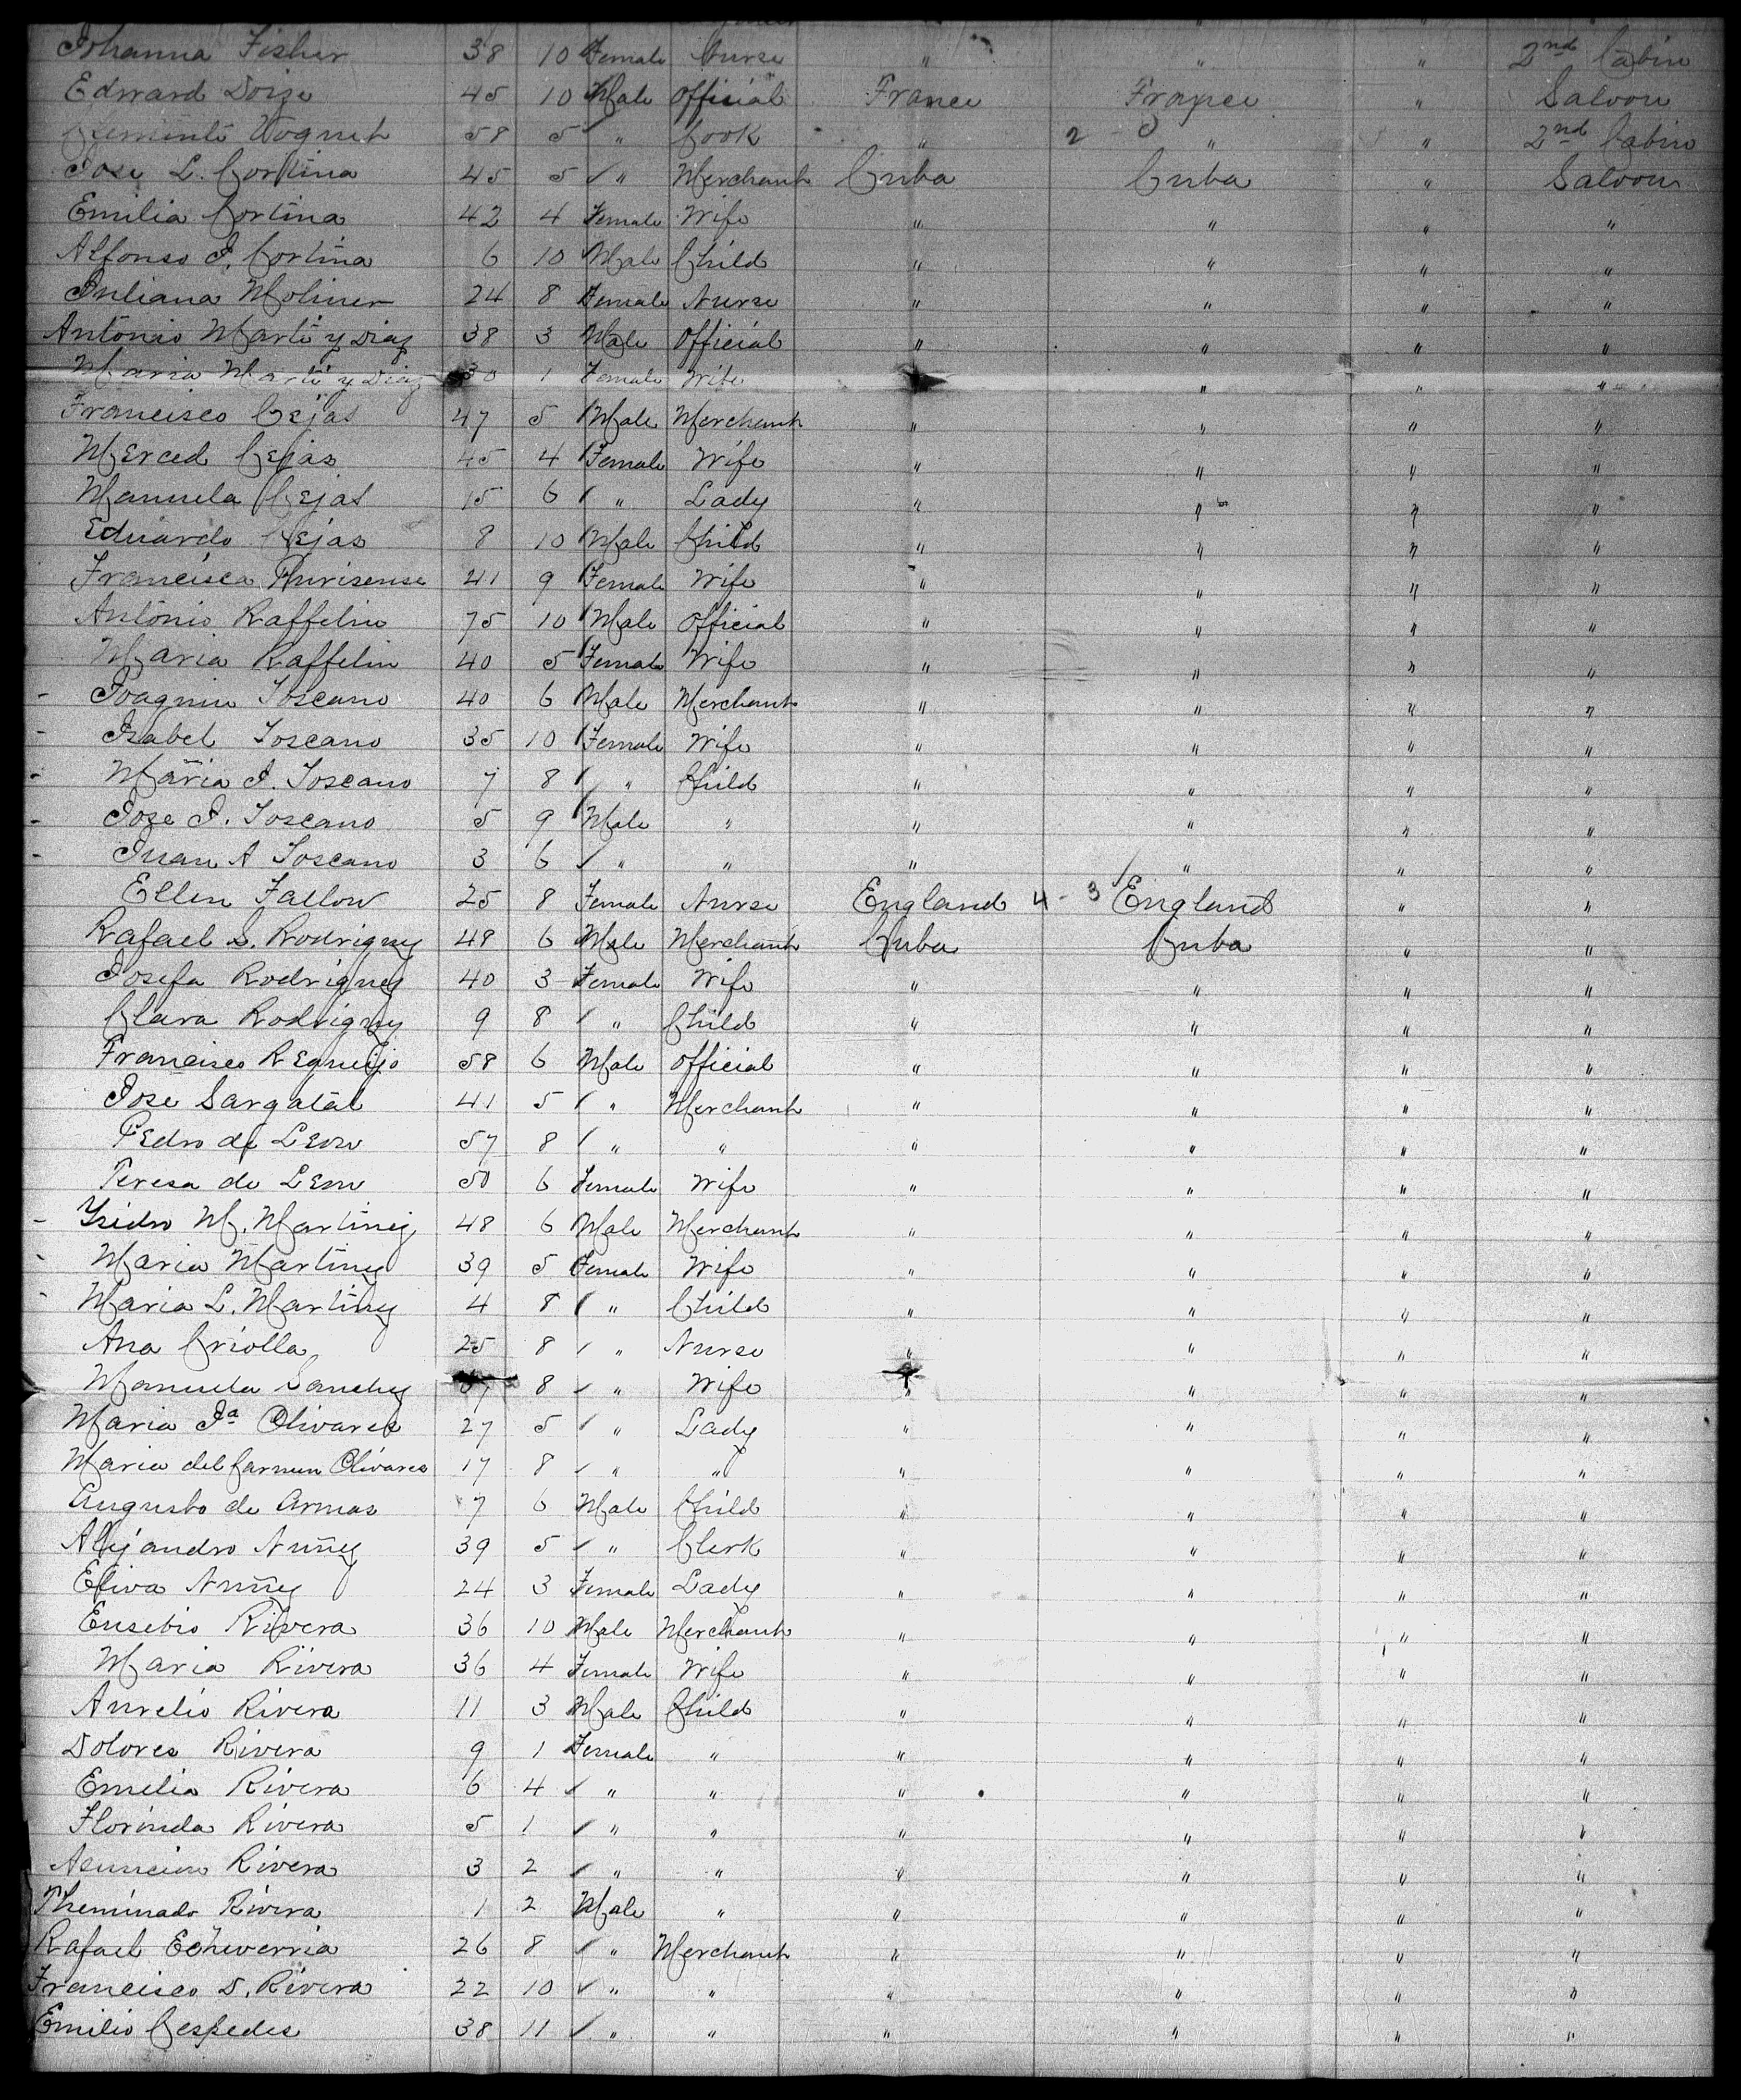 Johanna Fisher 38 10 Female Nurse " " " 2nd Cabin
Edward Doize 45 10 Male Official France France " Saloon
58 5 " Cook " 2 " " 2nd Cabin
Jose L. Cortina 45 5 " Merchant Cuba Cuba " Saloon
Emilia Cortina 42 4 Female Wife " " " "
Alfonso J. Cortina 6 10 Male Child " " " "
Juliana Moliner 24 8 Female Nurse " " " "
Antonio Marti y Diaz 38 3 Male Official " " " "
Maria Marti y Diaz 30 1 Female Wife " " "
Francisco Cejas 47 5 Male Merchant " " " "
Merced Cejas 45 4 Female Wife " " " "
Manuela Cejas 15 6 " Lady " " " "
Eduardo Cejas 8 10 Male Child " " " "
Francisca 41 9 Female Wife " " " "
Antonio Raffelin 75 10 Male Official " " " "
Maria Raffelin 40 5 Female Wife " " " "
- Joaquin Toscano 40 6 Male Merchant " " " "
- Isabel Toscano 35 10 Female Wife " " " "
- Maria J. Toscano 7 8 " Child " " " "
- Jose J. Toscano 5 9 Male " " " " "
- Juan A Toscano 3 6 " " " " " "
Ellen Fallow 25 8 Female Nurse England 4 - 3 England " "
Rafael S. Rodriguez 48 6 Male Merchant Cuba Cuba " "
Josefa Rodriguez 40 3 Female Wife " " " "
Clara Rodriguez 9 8 " Child " " " "
Francisco Requeijo 58 6 Male Official " " " "
Jose Sargatal 41 5 " Merchant " " " "
Pedro de Leon 57 8 " " " " " "
Teresa de Leon 50 6 Female Wife " " " "
- Ysidro M. Martinez 48 6 Male Merchant " " " "
- Maria Martinez 39 5 Female Wife " " " "
- Maria L. Martinez 4 8 " Child " " " "
Ana Criolla 25 8 " Nurse " " " "
Manuela Sanchez 8 " Wife " " " "
Maria Ja Olivares 27 5 " Lady " " " "
Maria del Carmen Olivares 17 8 " " " " " "
Augusto de Armas 7 6 Male Child " " " "
Alejandro Nuñez 39 5 " Clerk " " " "
Eliva Nuñez 24 3 Female Lady " " " "
Eusebio Rivera 36 10 Male Merchant " " " "
Maria Rivera 36 4 Female Wife " " " "
Aurelio Rivera 11 3 Male Child " " " "
Dolores Rivera 9 1 Female " " " " "
Emelia Rivera 6 4 " " " " " "
Florinda Rivera 5 1 " " " " " "
Asuncion Rivera 3 2 " " " " " "
Theminado Rivera 1 2 Male " " " " "
Rafael Echeverria 26 8 " Merchant " " " "
Francisco D. Rivera 22 10 " " " " " "
Emilio Cespedes 38 11 " " " " " "